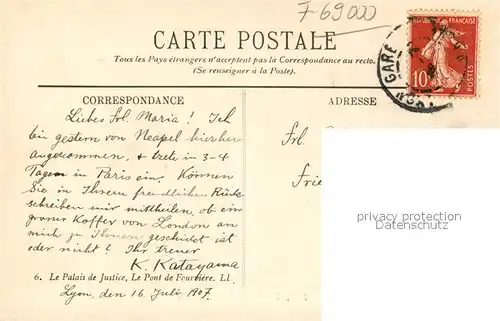 F 69000
CARTE POSTALE
Tous les Pays étrangers n'acceptent pas la Correspondance au recto.
(Se renseigner à la Poste).
RÉPUBLIQUE FRANÇAISE
10
POSTES
GARE
CORRESPONDANCE
ADRESSE
Liebes Frl. Maria! Ich
bin gestern von Neapel hierher
angekommen, + trete in 3-4
Tagen in Paris ein. Können
Sie in Ihrem freundlichen Rück-
schreiben mir mittheilen, ob ein
grosser Koffer von London an
mich zu Ihnen geschickt ist
oder nicht? Ihr treuer
K. Katayama
Frl.
Frie
privacy protection
Datenschutz
6. Le Palais de Justice, Le Pont de Fourvière. LL
Lyon, den 16. Juli 1907.